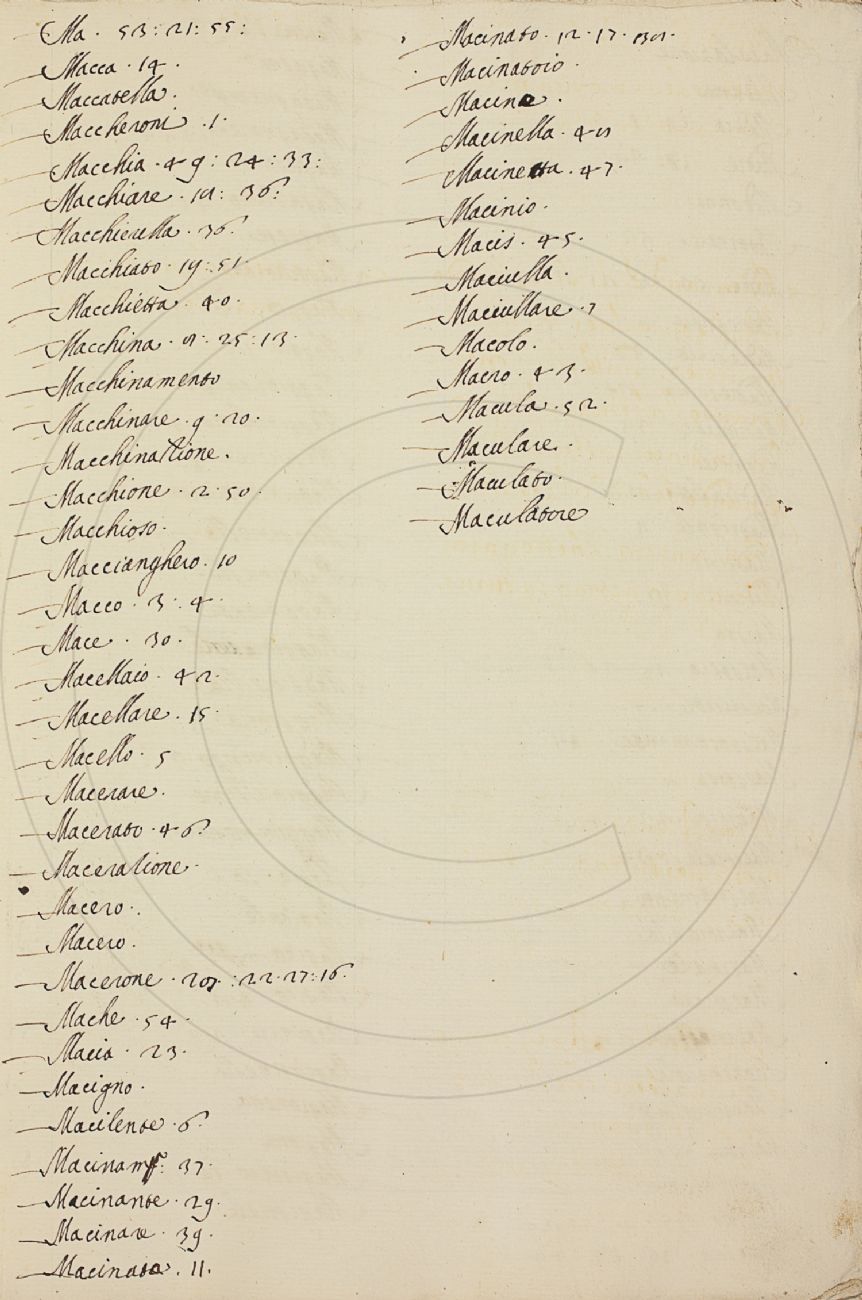 Ma · 53 : 21 : 55 :
Macca · 14 ·
Maccatella ·
Maccheroni · 1 ·
Macchia · 49 : 24 : 33 :
Macchiare · 36 :
Macchierella · 36 :
Macchiato · 19 : 51 ·
Macchietta · 40 ·
Macchina · 25 : 13 ·
Macchinamento
Macchinare · 9 · 20 ·
Macchinatione ·
Macchione · 2 · 50 ·
Macchioso ·
Maccianghero · 10
Macco · 3 : 4 ·
Mace · 30 ·
Macellaio · 42 ·
Macellare · 15 ·
Macello · 5
Macerare ·
Macerato · 46 :
Maceratione ·
Macero · :
Macero ·
Macerone · : 22 · 27 : 16 ·
Mache · 54 ·
Macia · 23 ·
Macigno ·
Macilente · 6 :
37 ·
Macinante · 29 ·
Macinare · 39 ·
Macinata · 11 ·
Macinato · 12 · 17 ·
Macinatoio ·
Macine ·
Macinella ·
Macinetta · 47 ·
Macinio ·
Macis · 45 ·
Maciulla ·
Maciullare · 7
Macolo ·
Macro · 43 ·
Macula · 52 ·
Maculare ·
Maculato ·
Maculatore